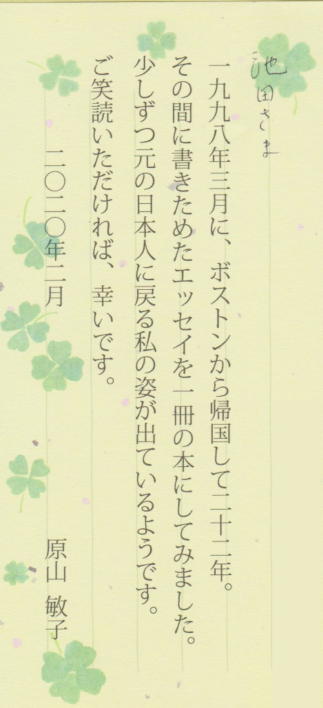 池田さま
一九九八年三月に、ボストンから帰国して二十二年。
その間に書きためたエッセイを一冊の本にしてみました。
少しずつ元の日本人に戻る私の姿が出ているようです。
ご笑読いただければ、幸いです。
二〇二〇年二月
原山 敏子